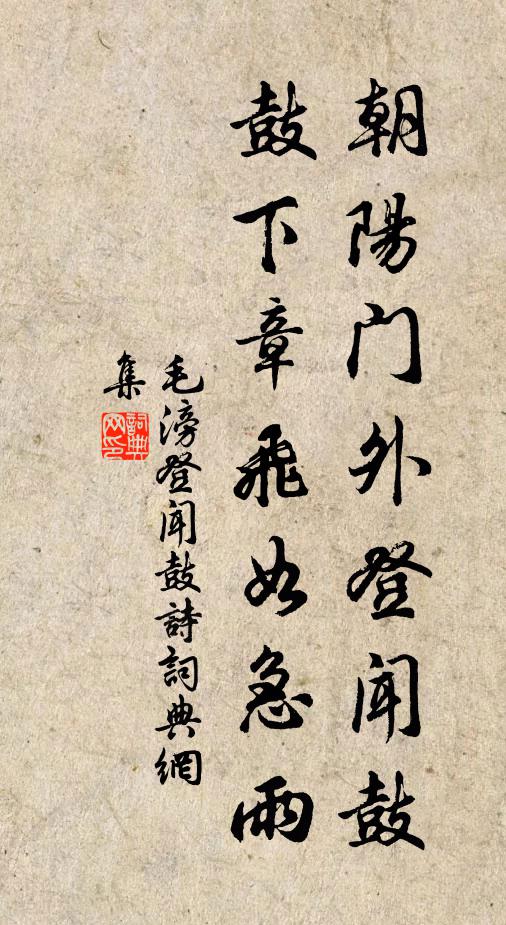 朝陽门外登闻鼓
鼓下章飛如急雨
毛滂登闻鼓詩詞典網
集
詞典网印